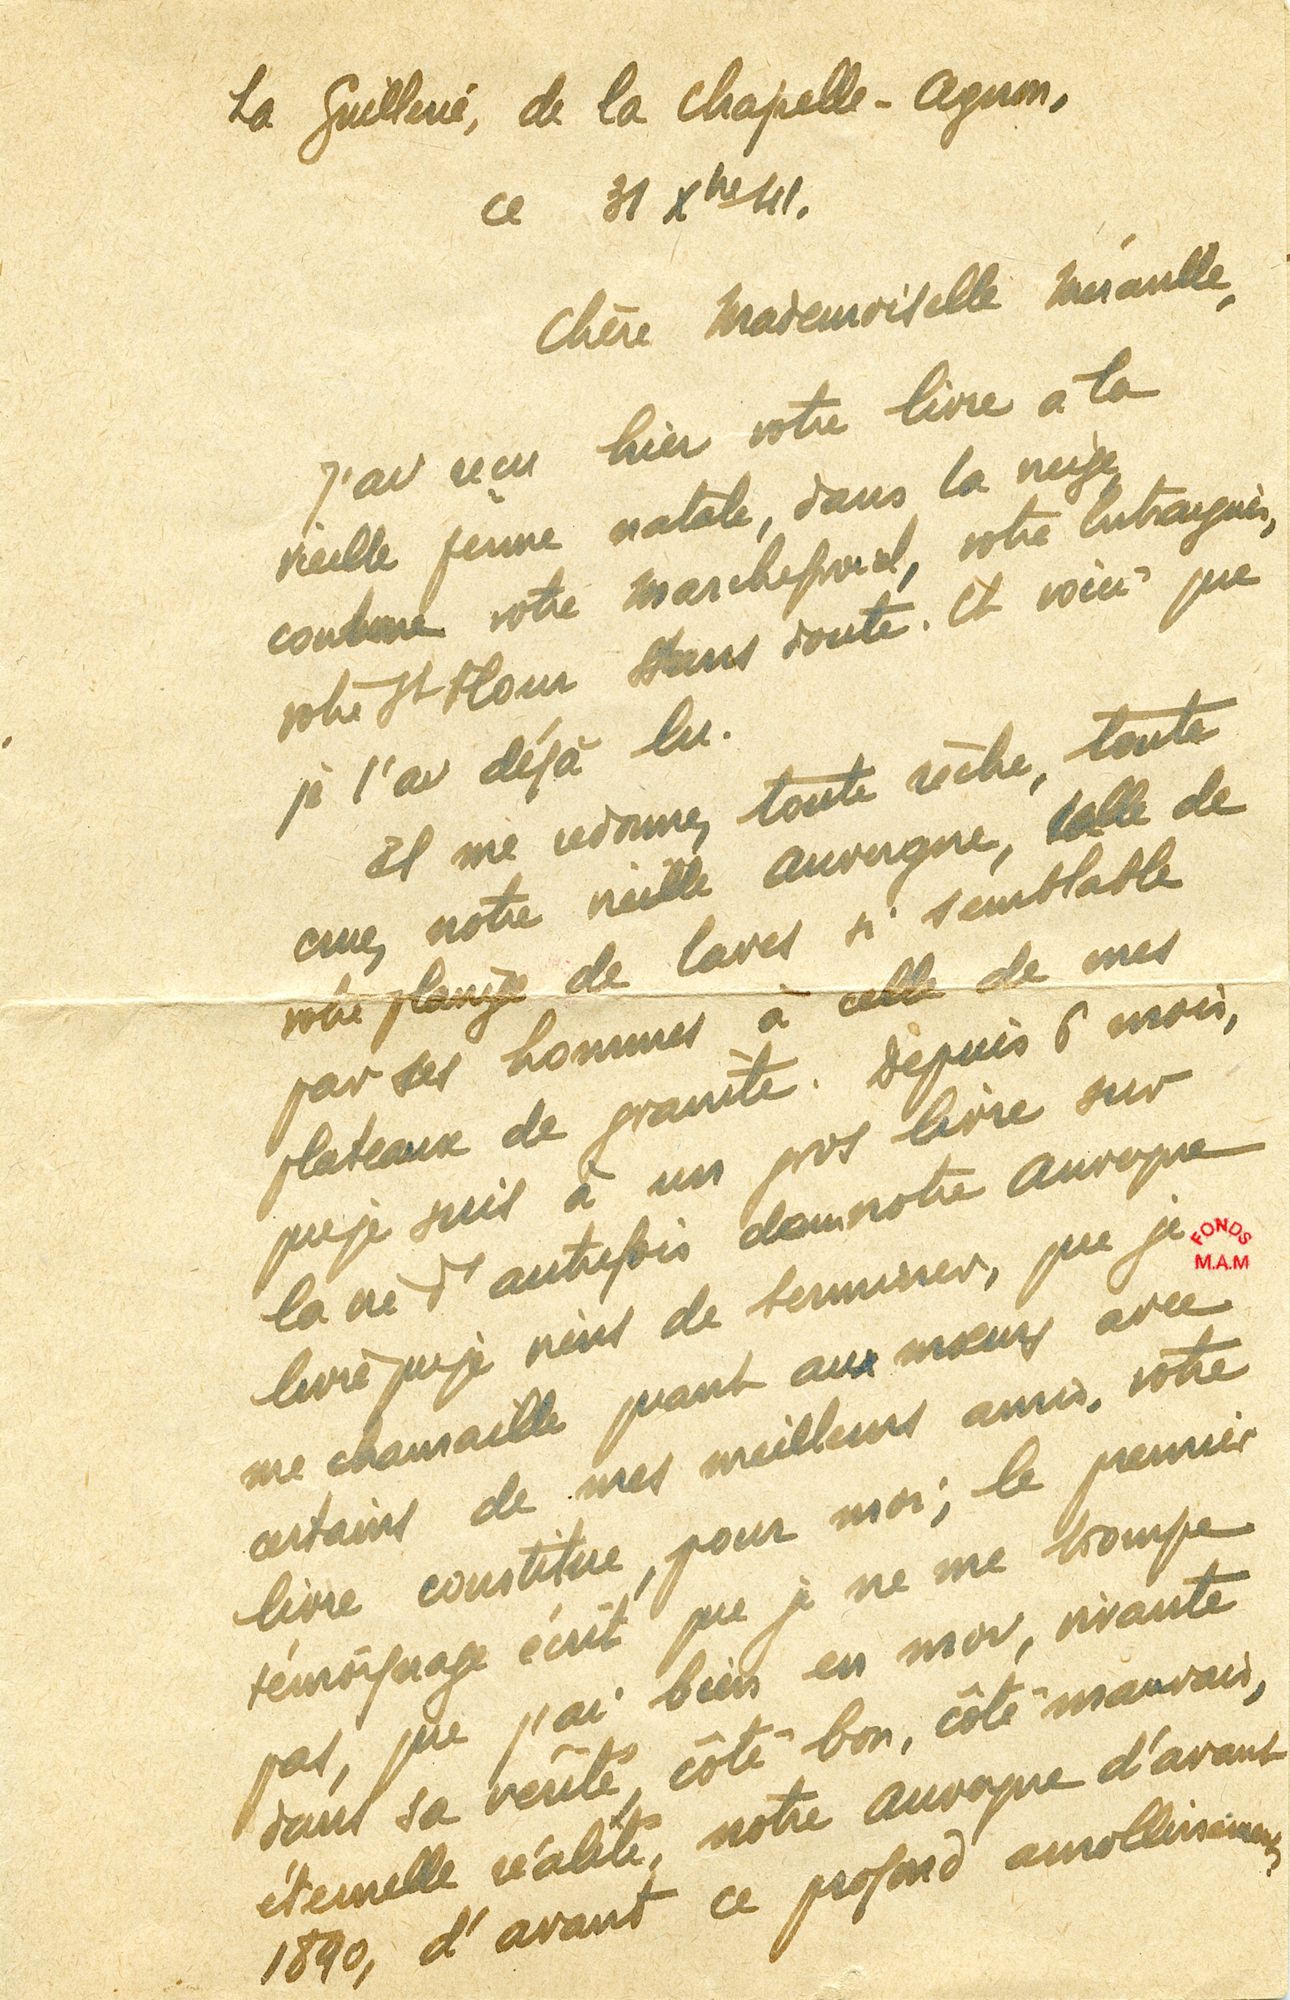 La Guillerie, de la Chapelle-Agnon,
ce 31 Xbre 41.
Chère Mademoiselle Méraville,
J'ai reçu hier votre livre à la
vieille ferme natale, dans la neige,
comme votre Marchefroid, votre Entraigues,
votre St Flour sans doute. Et voici que
je l'ai déjà lu.
Il me redonne, toute rêche, toute
crue, notre vieille Auvergne, celle de
votre planèze de laves si semblable
par ses hommes à celle de mes
plateaux de granite. Depuis 6 mois,
que je suis à un gros livre sur
la vie d'autrefois dans notre Auvergne
livre que je viens de terminer, que je
me chamaille quant aux mœurs avec
certains de mes meilleurs amis, votre
livre constitue, pour moi, le premier
témoignage écrit que je ne me trompe
pas, que j'ai bien en moi, vivante
dans sa vérité, côté bon, côté mauvais,
éternelle réalité, notre Auvergne d'avant
1890, d'avant ce profond amollissement,
FONDS
M.A.M